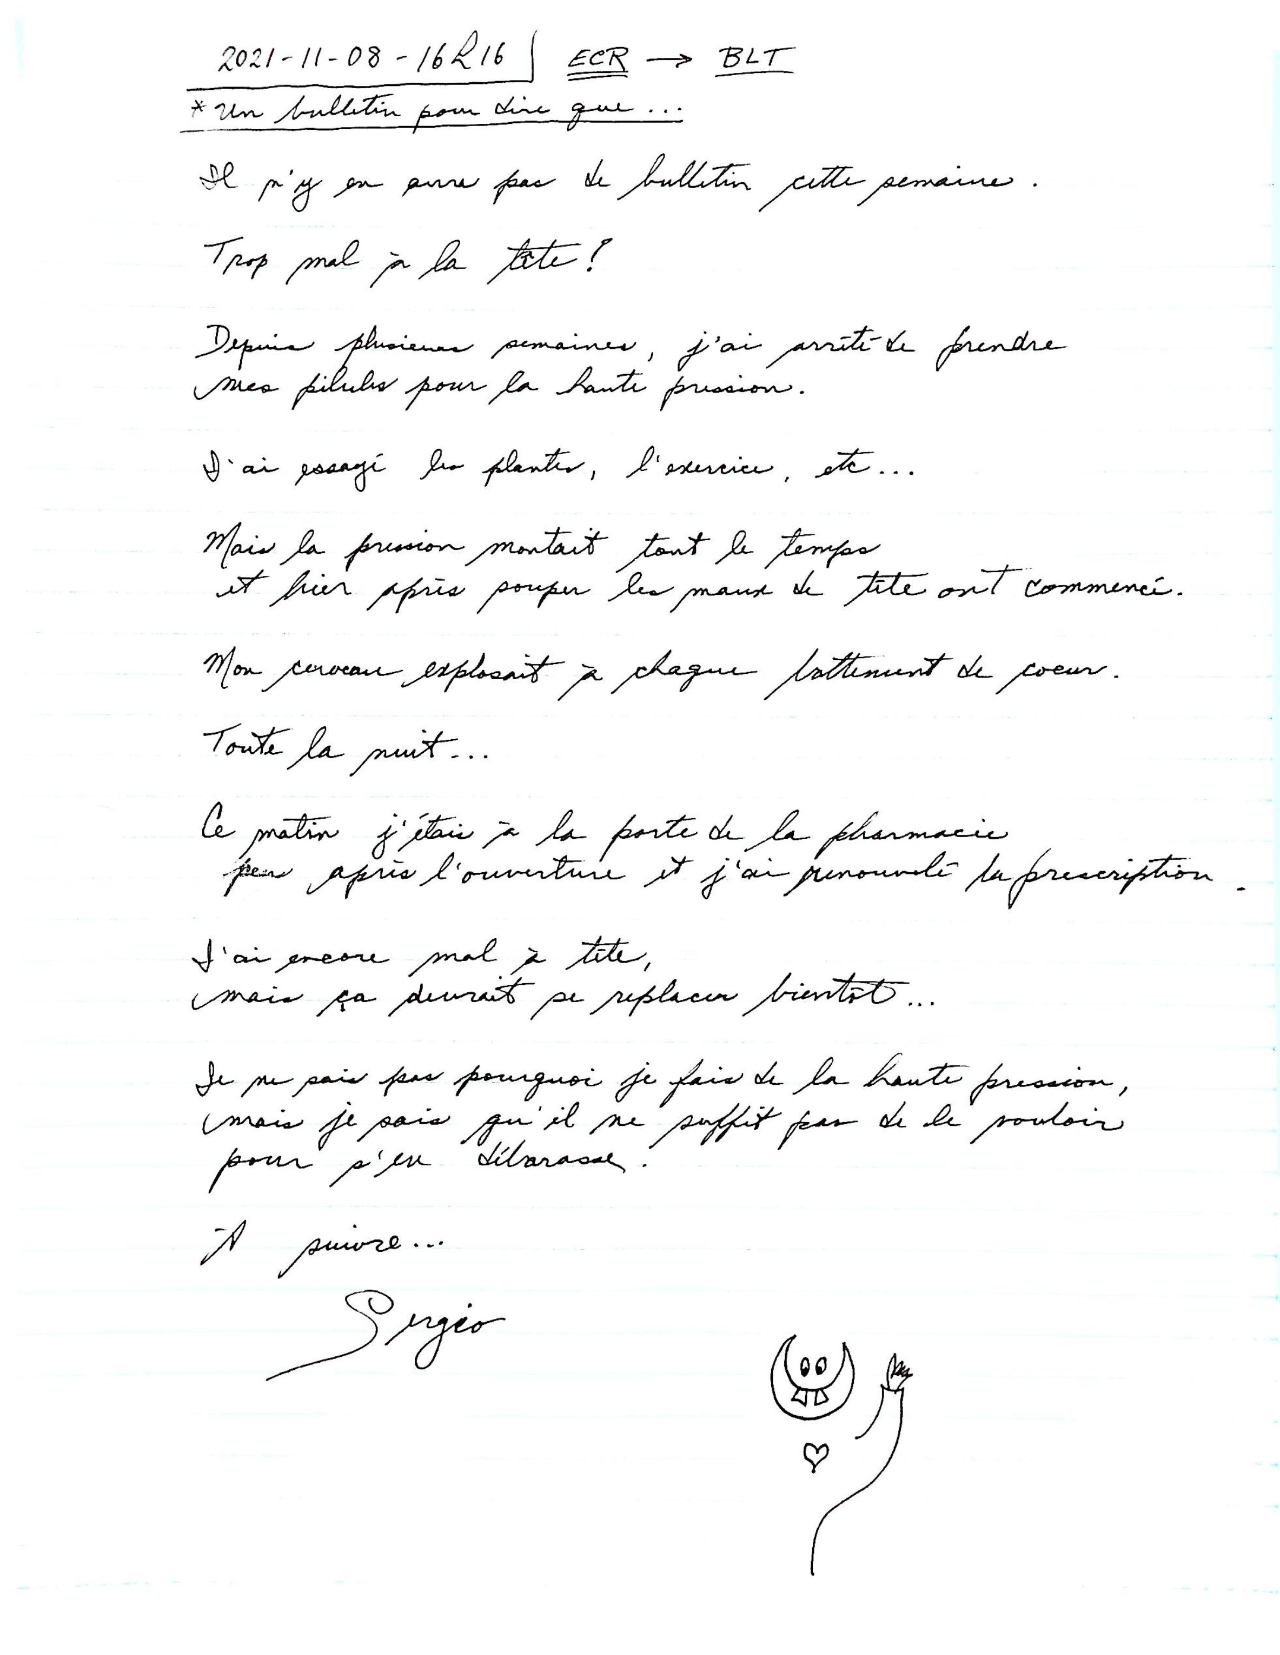 2021-11-08-16h16 ECR → BLT
* Un bulletin pour dire que...
Il n'y en aura pas de bulletin cette semaine.
Trop mal à la tête!
Depuis plusieurs semaines, j'ai arrêté de prendre
mes pilules pour la haute pression.
J'ai essayé les plantes, l'exercice, etc...
Mais la pression montait tout le temps
et hier après souper les maux de tête ont commencé.
Mon cerveau explosait à chaque battement de coeur.
Toute la nuit...
Ce matin j'étais à la porte de la pharmacie
peu après l'ouverture et j'ai renouvelé la prescription.
J'ai encore mal à tête,
mais ça devrait se replacer bientôt...
Je ne sais pas pourquoi je fais de la haute pression,
mais je sais qu'il ne suffit pas de le vouloir
pour s'en débarasser.
À suivre...
Sergio